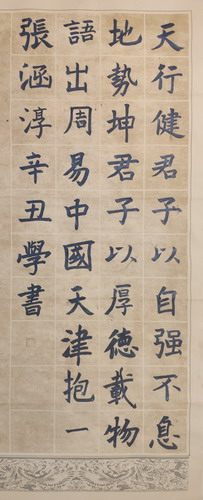 天行健君子以自强不息
地勢坤君子以厚德載物
語出周易中國天津抱一
張涵淳辛丑學書